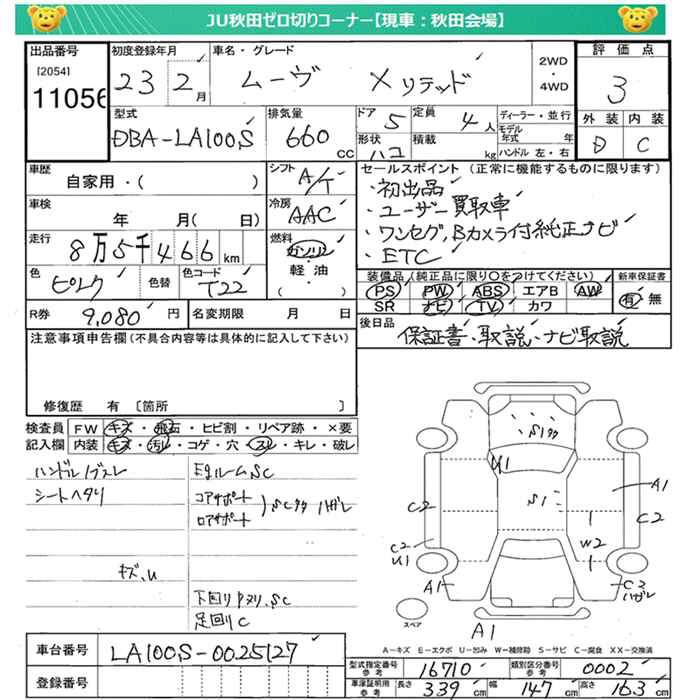 JU秋田ゼロ切りコーナー【現車：秋田会場】
出品番号
[2054]
11056
初度登録年月
23 2月
車名・グレード
ムーヴ X リミテッド
2WD
・
4WD
評価点
3
外装 内装
D C
型式
DBA-LA100S
排気量
660 CC
ドア 5
形状 ハコ
定員 4人
積載 kg
ディーラー・並行
モデル年式 年
ハンドル 左・右
車歴
自家用・( )
シフト A/T
車検
年 月( 日)
冷房 AAC
走行
8万5千466km
燃料
ガソリン
・軽油・
( )
色 ピンク
色替
色コード T22
R券 9,080円
名変期限 月 日
セールスポイント (正常に機能するものに限ります)
・初出品
・ユーザー買取車
・ワンセグ,Bカメラ付純正ナビ
・ETC
装備品(純正品に限り○をつけてください)
PS PW ABS エアB AW
SR ナビ TV カワ
新車保証書
有・無
後日品
保証書・取説・ナビ取説
注意事項申告欄(不具合内容等は具体的に記入して下さい)
修復歴 有 〔箇所 〕
検査員記入欄
FW キズ・飛石・ヒビ割・リペア跡・×要
内装 キズ・汚レ・コゲ・穴・スレ・キレ・破レ
ハンドルノブスレ
シートヘタリ
キズ、U
EgルームSC
コアサポート
ロアサポート
SCサク ハガレ
下回リサヌリ,SC
足回りC
S1
U1
S1
A1
C2
C2
W2
C2
U1
A1
C2
ハガレ
A1
スペア
A－キズ E－エクボ U－凹み W－補修跡 S－サビ C－腐食 XX－交換済
車台番号
LA100S-0025127
登録番号
型式指定番号 参考 16710
類別区分番号 参考 0002
車庫証明用 参考 長さ 339 cm 幅 147 cm 高さ 163 cm